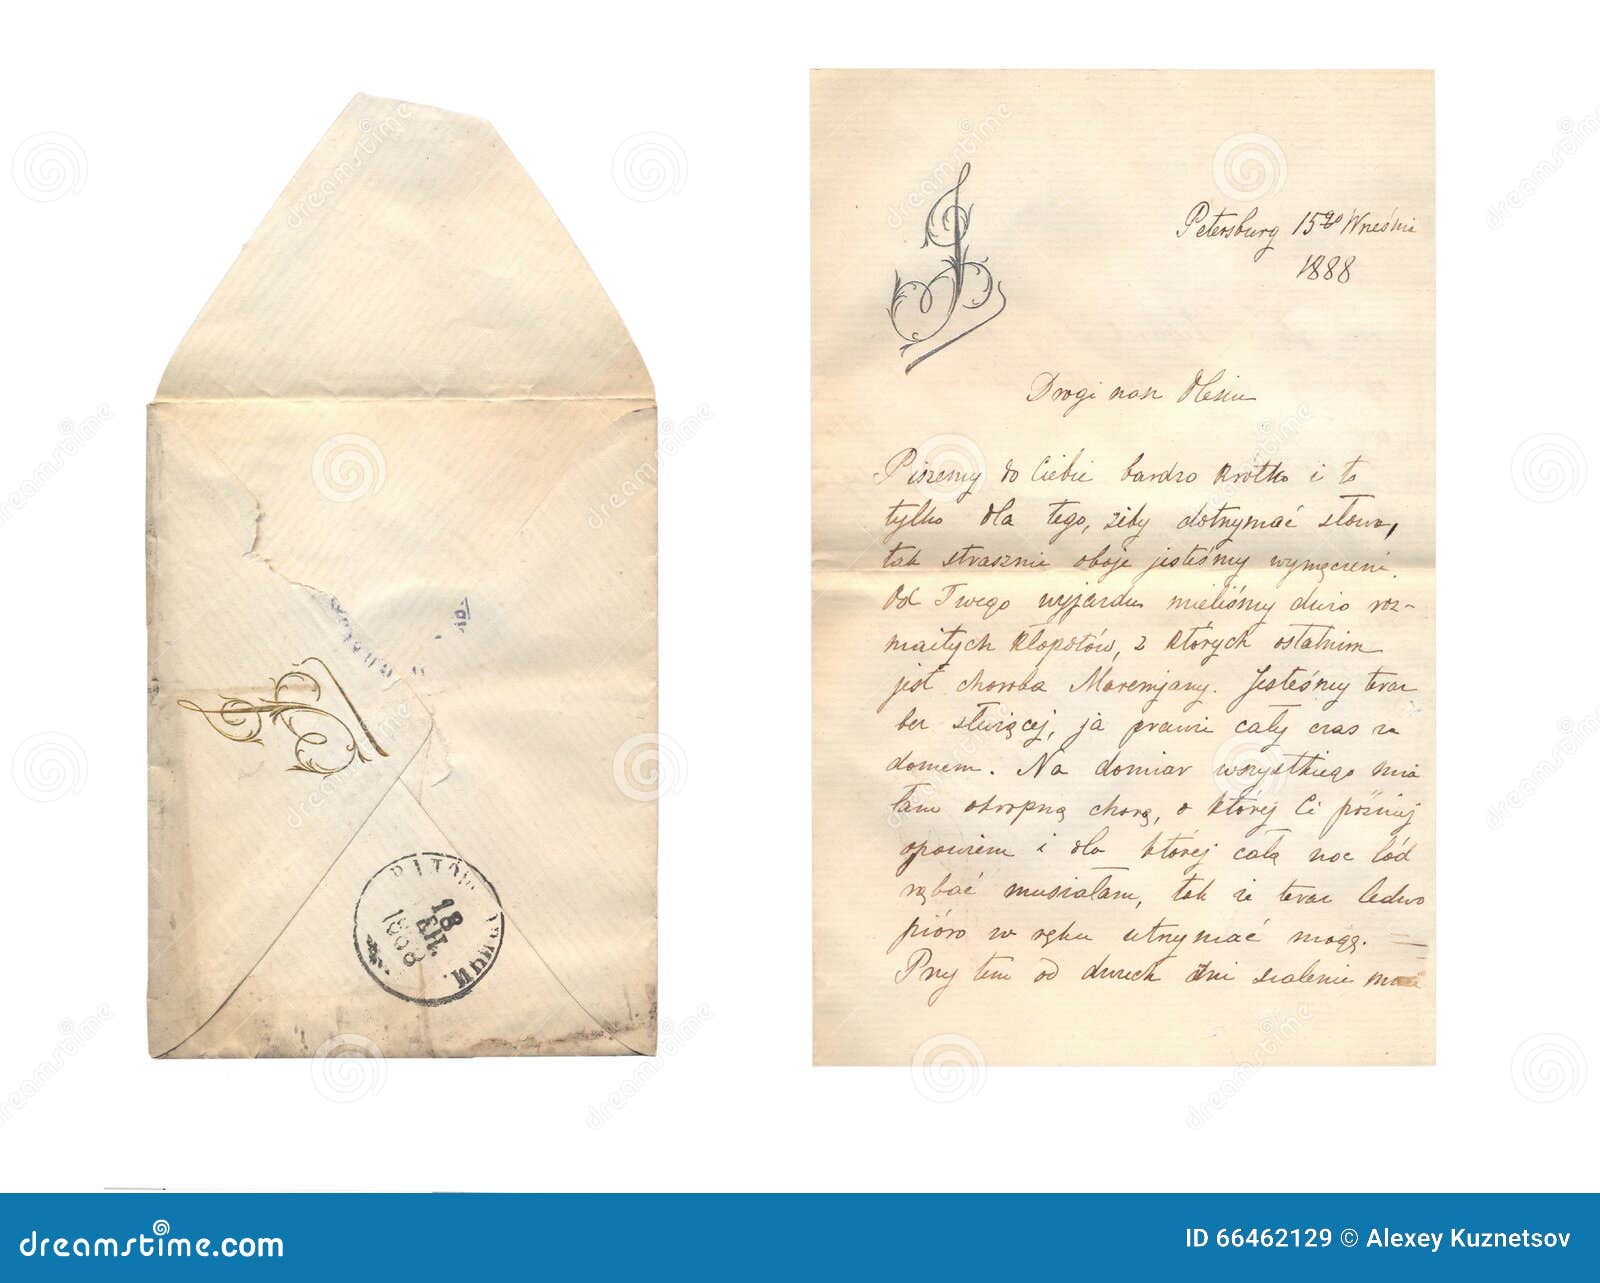 Petersburg 15go Wrześnie
1888
Drogi nasz Olesiu
Piszemy do Ciebie bardzo krótko i to
tylko dla tego, żeby dotrzymać słowa,
tak strasznie oboje jesteśmy wymęczeni.
Od Twego wyjazdu mieliśmy dużo roz-
maitych kłopotów, z których ostatnim
jest choroba Maremjany. Jesteśmy teraz
bez służącej, ja prawie cały czas za
domem. Na domiar wszystkiego mia
łam okropną chorą, o której Ci później
opowiem i dla której całą noc lód
rąbać musiałam, tak że teraz ledwo
pióro w ręku utrzymać mogę. —
Przy tem od dwuch dni szalenie
18
ЕН.
dreamstime.com
ID 66462129 © Alexey Kuznetsov